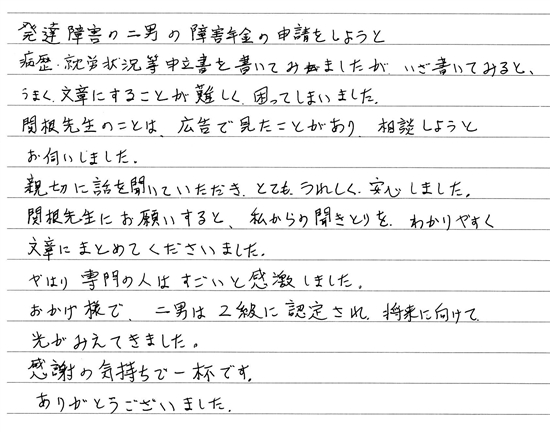 発達障害の二男の障害年金の申請をしようと
病歴・就労状況等申立書を書いてみましたが、いざ書いてみると、
うまく文章にすることが難しく、困ってしまいました。
関根先生のことは、広告で見たことがあり、相談しようと
お伺いしました。
親切に話を聞いていただき、とても、うれしく、安心しました。
関根先生にお願いすると、私からの聞きとりを、わかりやすく
文章にまとめてくださいました。
やはり専門の人はすごいと感激しました。
おかげ様で、二男は2級に認定され、将来に向けて
光がみえてきました。
感謝の気持ちで一杯です。
ありがとうございました。